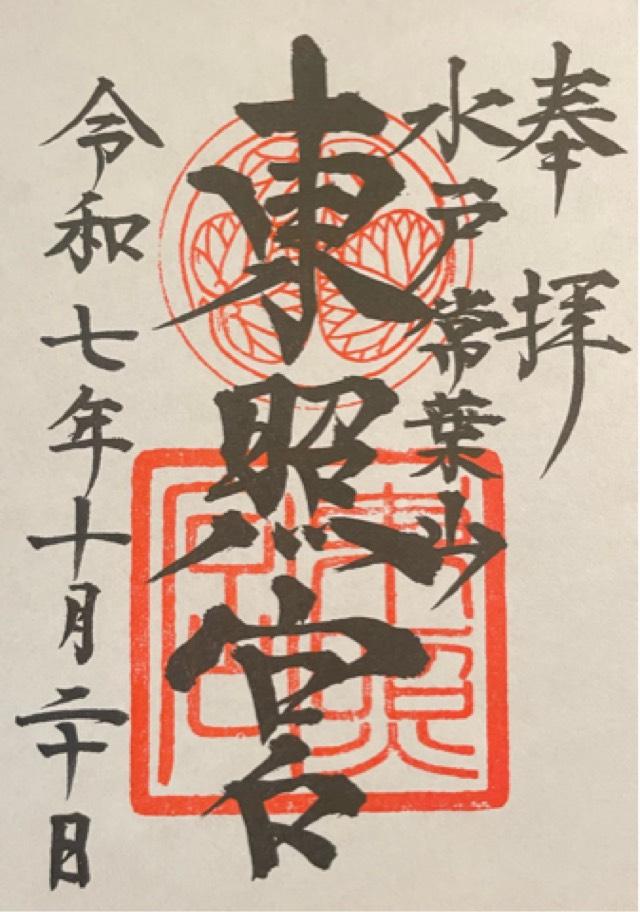 奉拝
水戸常葉山
東照宮
令和七年十月二十日
東照宮印